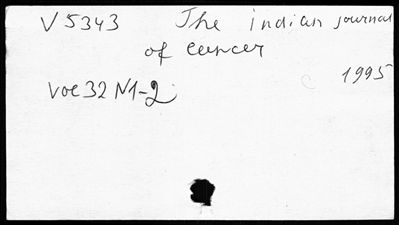 V5343 The indian journal
of cancer
1995
voe 32 N1-2